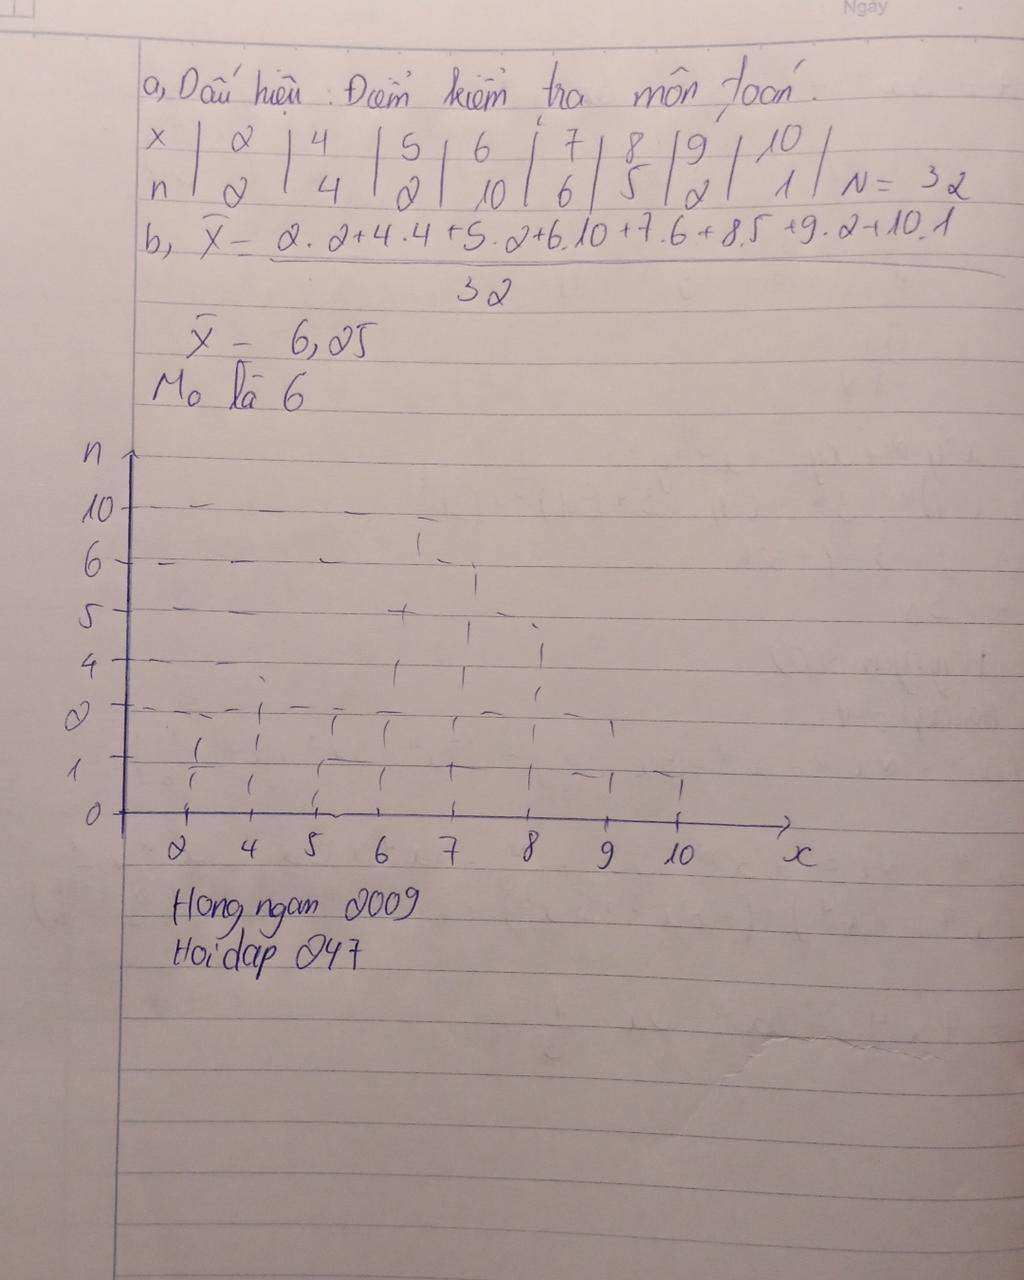 Ngày
a, Dấu hiệu : Điểm kiểm tra môn toán.
x | 2 | 4 | 5 | 6 | 7 | 8 | 9 | 10 |
n | 2 | 4 | 2 | 10 | 6 | 5 | 2 | 1 | N = 32
b, X̄ = 2.2+4.4+5.2+6.10+7.6+8.5+9.2+10.1
32
X̄ = 6,25
Mo là 6
n
10
6
5
4
2
1
0
2 4 5 6 7 8 9 10 x
Hong ngan 2009
Hoidap 247